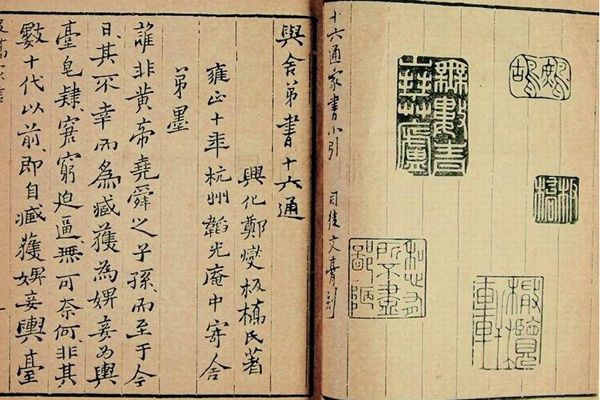 鷓鴣
板橋
無數青山拜草廬
私心有所不盡鄙陋
十六通家書小引
司徒文膏刻
與舍弟書十六通
興化鄭燮板橋氏著
雍正十年杭州韜光庵中寄舍
弟墨
誰非黃帝堯舜之子孫而至于今
日其不幸而為臧獲為婢妾為輿
臺皂隸窘窮迫逼無可奈何非其
數十代以前即自臧獲婢妾輿臺